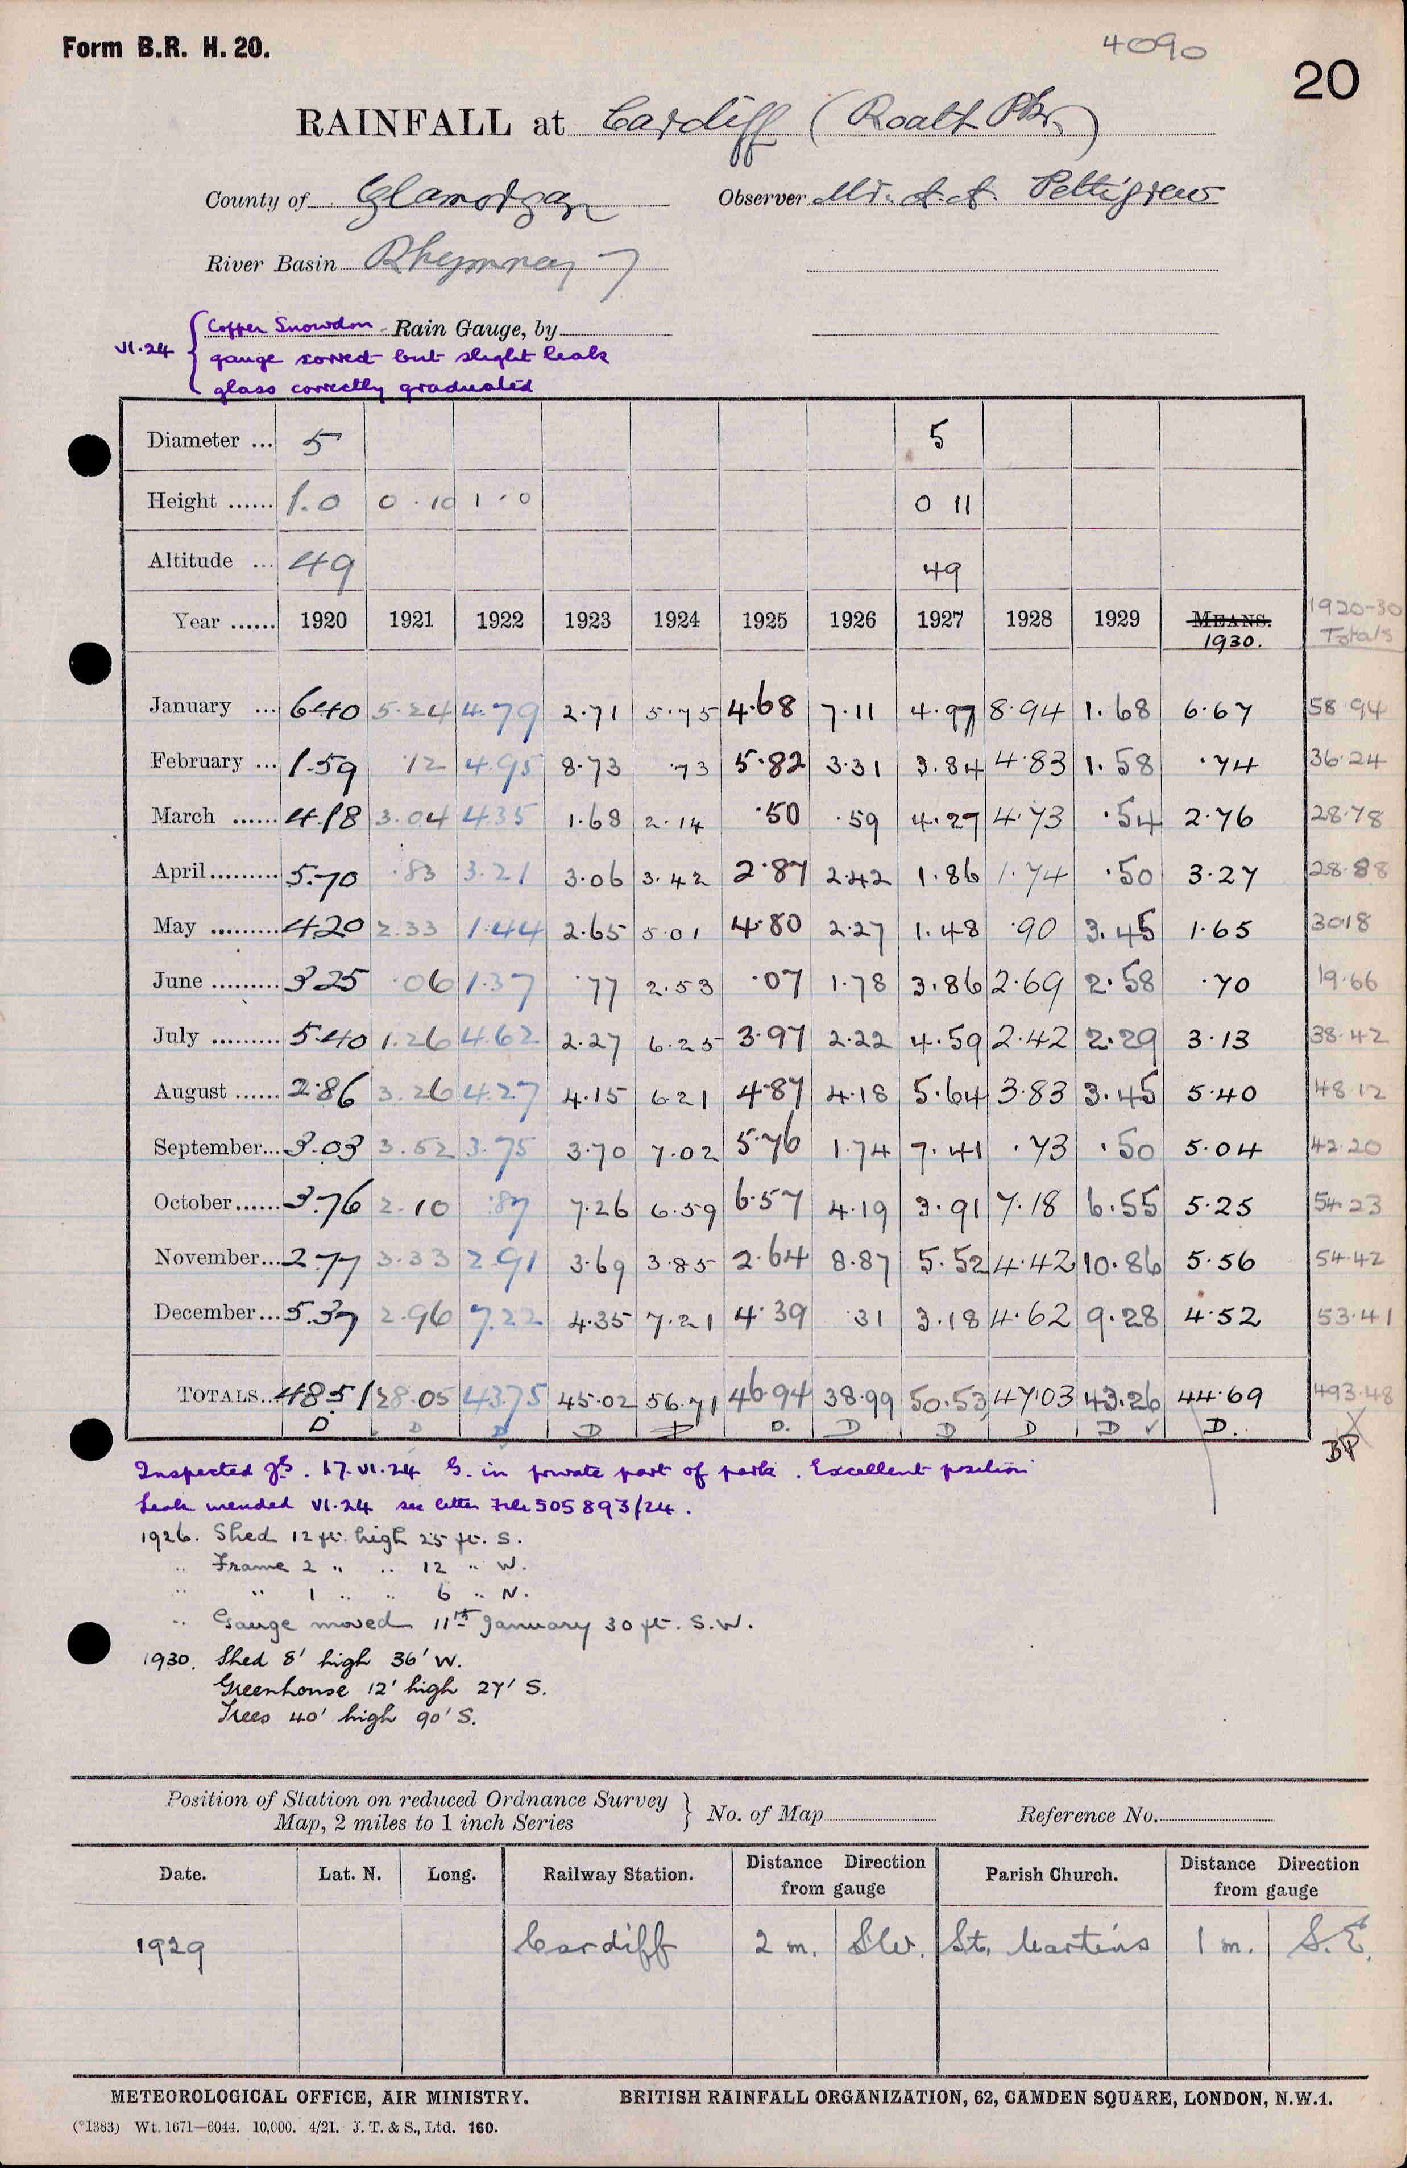 Form B.R. H. 20.
4090
20
RAINFALL at Cardiff (Roath Pk.)
County of Glamorgan Observer Mr. A. A. Pettigrew
River Basin Rhymney
VI.24 { Copper Snowdon - Rain Gauge, by
gauge correct but slight leak
glass correctly graduated
Diameter ... 5 5
Height ...... 1.0 0.10 1.0 0 11
Altitude ... 49 49
Year ...... 1920 1921 1922 1923 1924 1925 1926 1927 1928 1929 MEANS. 1930. 1920-30 Totals
January ... 6.40 5.24 4.79 2.71 5.75 4.68 7.11 4.97 8.94 1.68 6.67 58.94
February ... 1.59 .12 4.95 8.73 .73 5.82 3.31 3.84 4.83 1.58 .74 36.24
March ...... 4.18 3.04 4.35 1.68 2.14 .50 .59 4.27 4.73 .54 2.76 28.78
April ......... 5.70 .83 3.21 3.06 3.42 2.87 2.42 1.86 1.74 .50 3.27 28.88
May ......... 4.20 2.33 1.44 2.65 5.01 4.80 2.27 1.48 .90 3.45 1.65 30.18
June ......... 3.25 .06 1.37 .77 2.53 .07 1.78 3.86 2.69 2.58 .70 19.66
July ......... 5.40 1.26 4.62 2.27 6.25 3.97 2.22 4.59 2.42 2.29 3.13 38.42
August ...... 2.86 3.26 4.27 4.15 6.21 4.87 4.18 5.64 3.83 3.45 5.40 48.12
September... 3.03 3.52 3.75 3.70 7.02 5.76 1.74 7.41 .73 .50 5.04 42.20
October...... 3.76 2.10 .87 7.26 6.59 6.57 4.19 3.91 7.18 6.55 5.25 54.23
November... 2.77 3.33 2.91 3.69 3.85 2.64 8.87 5.52 4.42 10.86 5.56 54.42
December... 5.37 2.96 7.22 4.35 7.21 4.39 .31 3.18 4.62 9.28 4.52 53.41
TOTALS... 48.51 28.05 43.75 45.02 56.71 46.94 38.99 50.53 47.03 43.26 44.69 493.48
D D D D D D. D D D D ✓ D. BP
Inspected 17.VI.24 G. in private part of park. Excellent position
Leak mended VI.24 see letter File 505893/24.
1926. Shed 12 ft. high 25 ft. S.
" Frame 2 " " 12 " W.
" " 1 " " 6 " N.
" Gauge moved 11th January 30 ft. S.W.
1930. Shed 8' high 36' W.
Greenhouse 12' high 27' S.
Trees 40' high 90' S.
Position of Station on reduced Ordnance Survey Map, 2 miles to 1 inch Series } No. of Map Reference No.
Date. Lat. N. Long. Railway Station. Distance Direction from gauge Parish Church. Distance Direction from gauge
1929 Cardiff 2 m. S.W. St. Martins 1 m. S.E.
METEOROLOGICAL OFFICE, AIR MINISTRY. BRITISH RAINFALL ORGANIZATION, 62, CAMDEN SQUARE, LONDON, N.W.1.
(*1383) Wt. 1671—6044. 10,000. 4/21. J. T. & S., Ltd. 160.